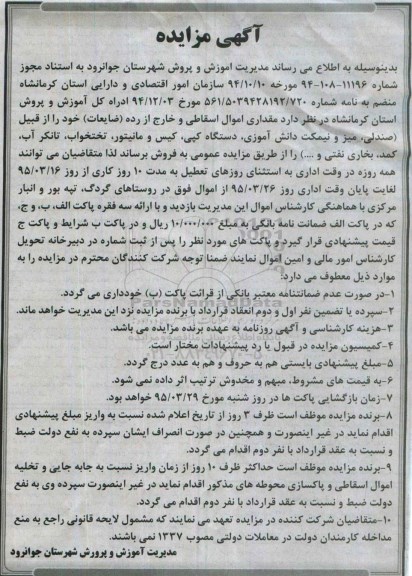 آگهی مزایده
بدینوسیله به اطلاع می رساند مدیریت اموزش و پروش شهرستان جوانرود به استناد مجوز
شماره ۱۱۱۹۶-۱۰۸-۹۴ مورخه ۹۴/۱۰/۱۰ سازمان امور اقتصادی و دارایی استان کرمانشاه
منضم به نامه شماره ۵۶۱/۵۰۳۹۴۲۸۱۹۲/۷۲۰ مورخ ۹۴/۱۲/۰۳ ادراه کل آموزش و پروش
استان کرمانشاه در نظر دارد مقداری اموال اسقاطی و خارج از رده (ضایعات) خود را از قبیل
(صندلی، میز و نیمکت دانش آموزی، دستگاه کپی، کیس و مانیتور، تختخواب، تانکر آب،
کمد، بخاری نفتی و ....) را از طریق مزایده عمومی به فروش برساند لذا متقاضیان می توانند
همه روزه در وقت اداری به استثنای روزهای تعطیل به مدت ۱۰ روز کاری از روز ۹۵/۰۳/۱۶
لغایت پایان وقت اداری روز ۹۵/۰۳/۲۶ از اموال فوق در روستاهای گردگ، تپه بور و انبار
مرکزی با هماهنگی کارشناس اموال این مدیریت بازدید و با ارائه سه فقره پاکت الف، ب، و ج،
که در پاکت الف ضمانت نامه بانکی به مبلغ ۱۰/۰۰۰/۰۰۰ ریال و در پاکت ب شرایط و پاکت ج
قیمت پیشنهادی قرار گیرد و پاکت های مورد نظر را پس از ثبت شماره در دبیرخانه تحویل
کارشناس امور مالی و امین اموال نمایند ضمنا توجه شرکت کنندگان محترم در مزایده را به
موارد ذیل معطوف می دارد:
۱-در صورت عدم ضمانتنامه معتبر بانکی از قرائت پاکت (ب) خودداری می گردد.
۲-سپرده یا تضمین نفر اول و دوم انعقاد قرارداد با برنده مزایده نزد این مدیریت خواهد ماند.
۳-هزینه کارشناسی و آگهی روزنامه به عهده برنده مزایده می باشد.
۴-کمیسیون مزایده در قبول یا رد پیشنهادات مختار است.
۵-مبلغ پیشنهادی بایستی هم به حروف و هم به عدد درج گردد.
۶-به قیمت های مشروط، مبهم و مخدوش ترتیب اثر داده نمی شود.
۷-زمان بازگشایی پاکت ها در روز شنبه مورخ ۹۵/۰۳/۲۹ خواهد بود.
۸-برنده مزایده موظف است ظرف ۳ روز از تاریخ اعلام شده نسبت به واریز مبلغ پیشنهادی
اقدام نماید در غیر اینصورت و همچنین در صورت انصراف ایشان سپرده به نفع دولت ضبط
و نسبت به عقد قرارداد با نفر دوم اقدام می گردد.
۹-برنده مزایده موظف است حداکثر ظرف ۱۰ روز از زمان واریز نسبت به جابه جایی و تخلیه
اموال اسقاطی و پاکسازی محوطه های مذکور اقدام نماید در غیر اینصورت سپرده وی به نفع
دولت ضبط و نسبت به عقد قرارداد با نفر دوم اقدام می گردد.
۱۰-متقاضیان شرکت کننده در مزایده تعهد می نمایند که مشمول لایحه قانونی راجع به منع
مداخله کارمندان دولت در معاملات دولتی مصوب ۱۳۳۷ نمی باشند.
مدیریت آموزش و پرورش شهرستان جوانرود